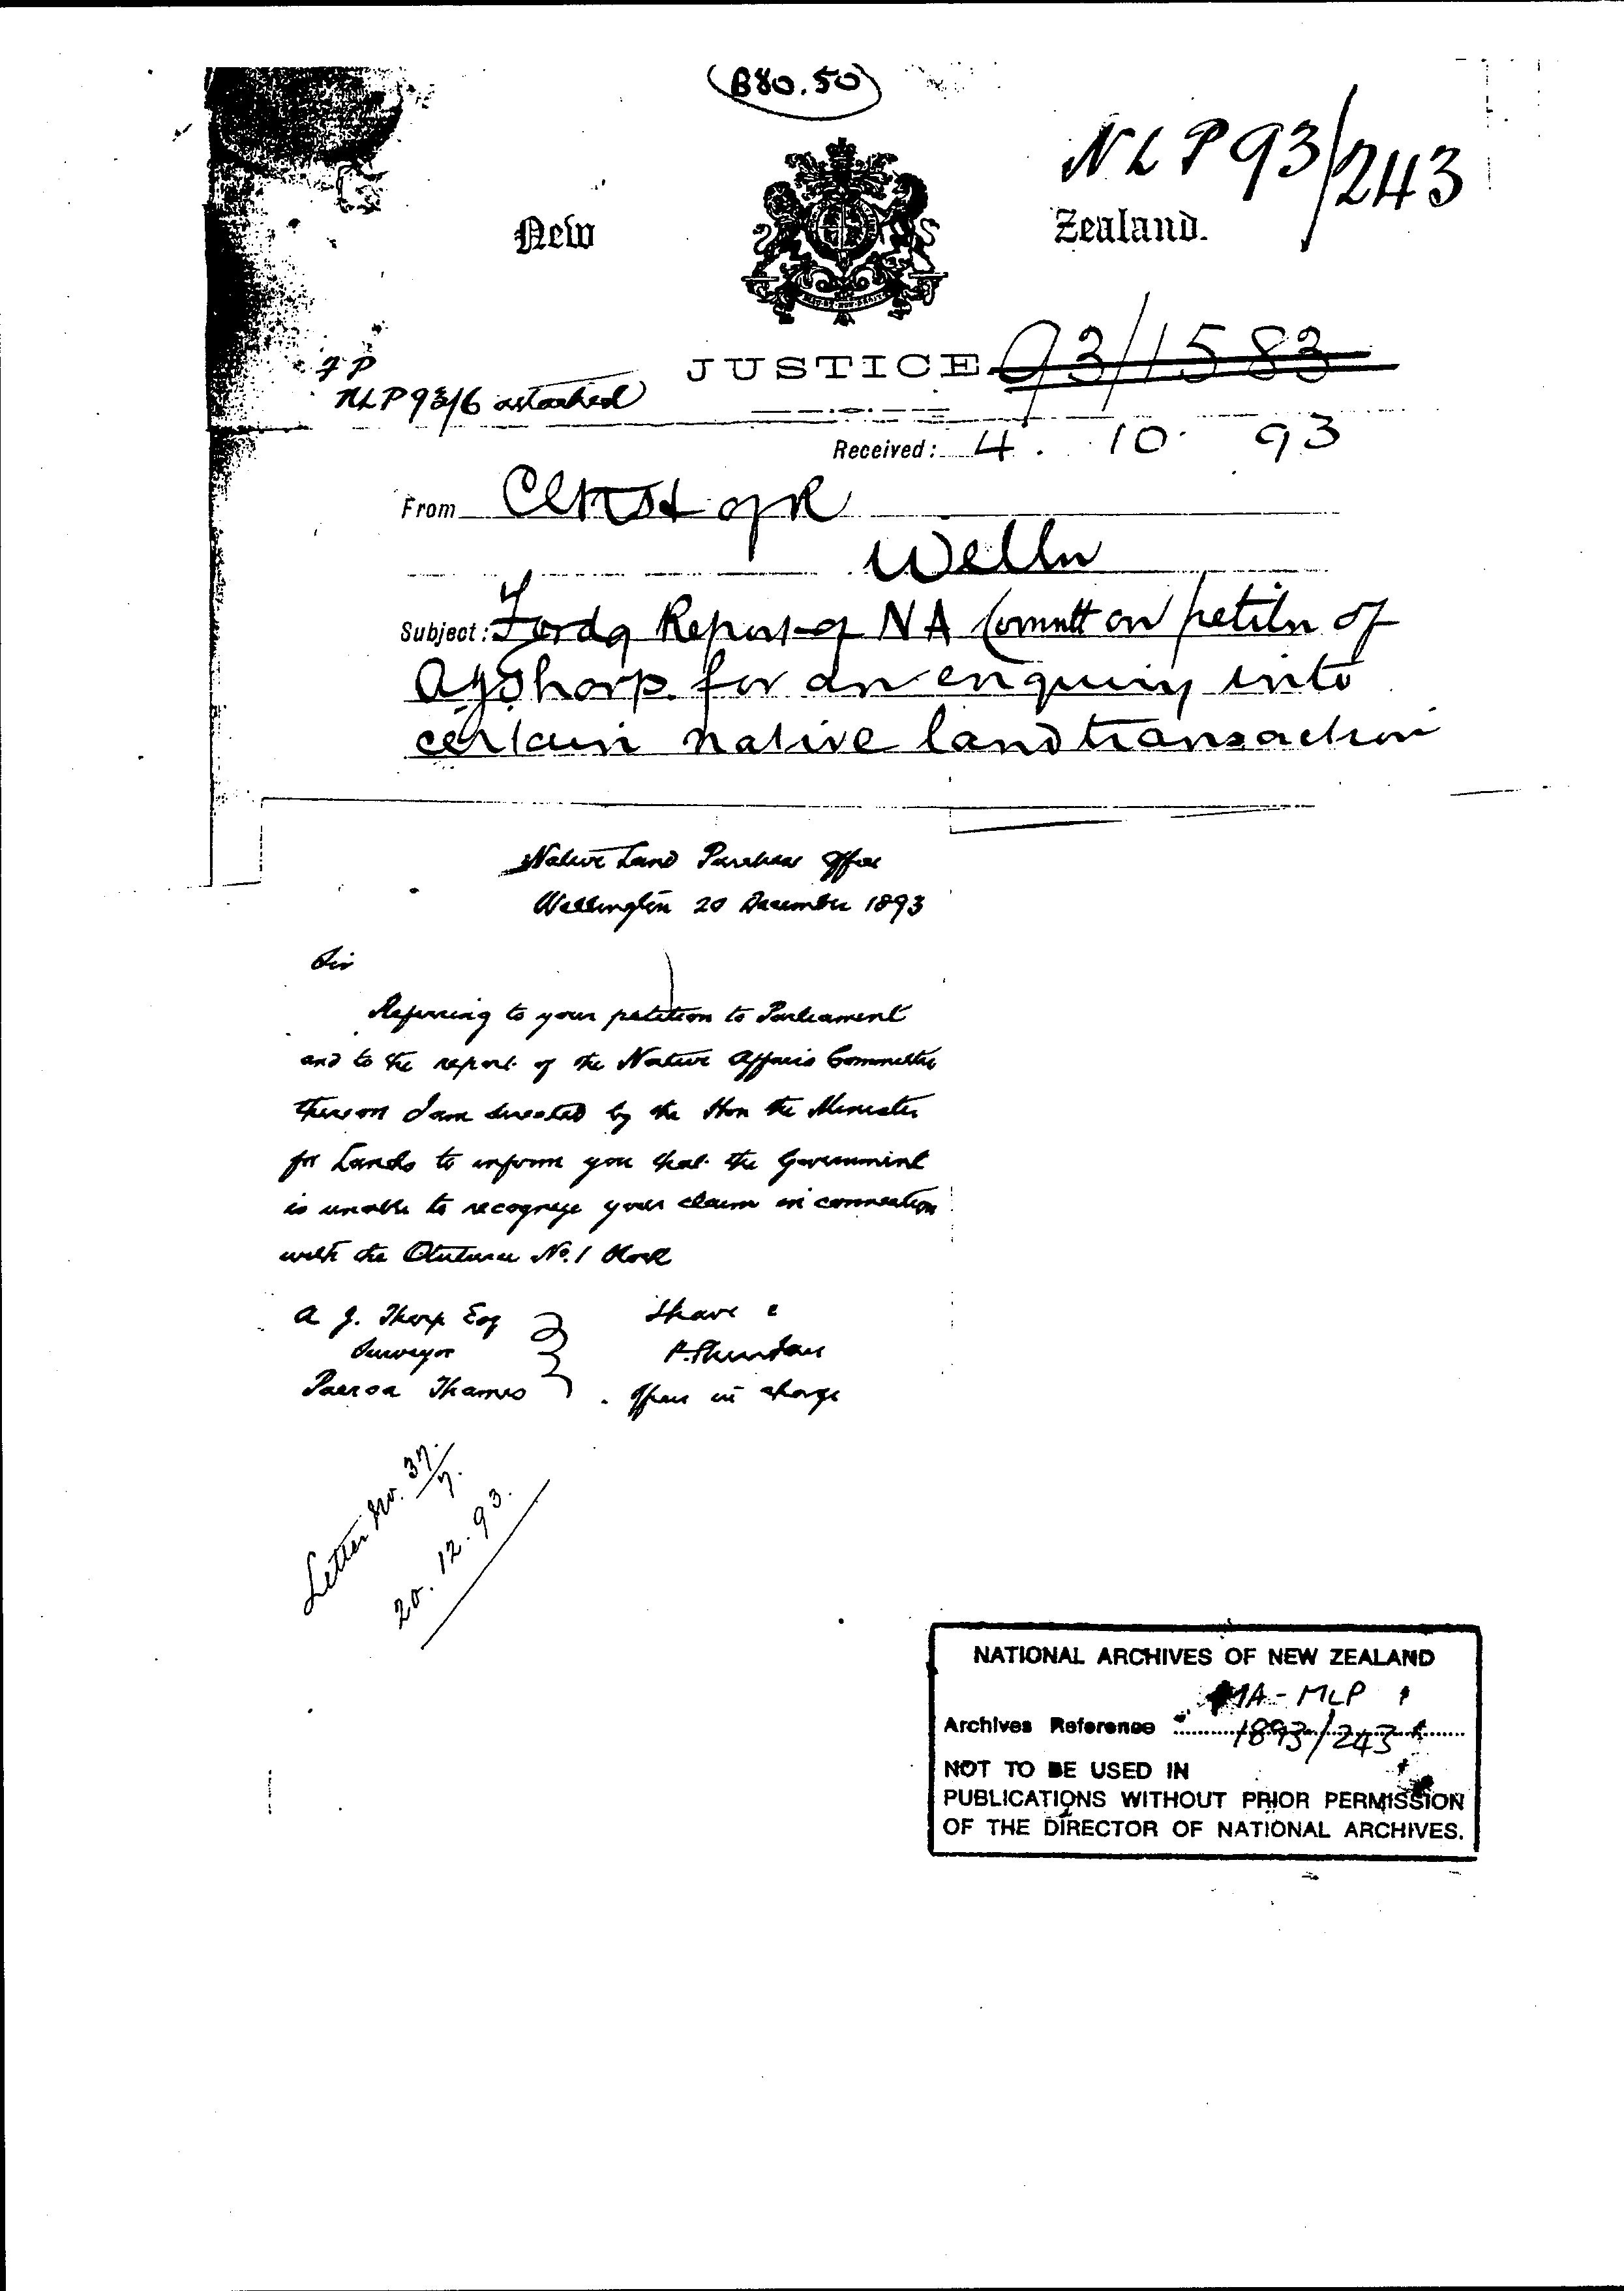 B80.50
NLP 93/243
New Zealand.
JUSTICE 93/1583
FP
NLP 93/6 attached
Received: 4. 10. 93
From Clk H of R
Welln
Subject: Fordg Report of NA Committ on petitn of
A J Thorp for an enquiry into
certain native land transaction
Native Land Purchase Office
Wellington 20 December 1893
Sir
Referring to your petition to Parliament
and to the report of the Native Affairs Committee
thereon I am directed by the Hon the Minister
for Lands to inform you that the Government
is unable to recognize your claim in connection
with the Otuturu No. 1 Block
A J. Thorp Esq
Surveyor
Paeroa Thames
I have &
P. Sheridan
Officer in charge
Letter No. 37/7.
20. 12. 93.
NATIONAL ARCHIVES OF NEW ZEALAND
MA-MLP 1
Archives Reference 1893/243
NOT TO BE USED IN
PUBLICATIONS WITHOUT PRIOR PERMISSION
OF THE DIRECTOR OF NATIONAL ARCHIVES.